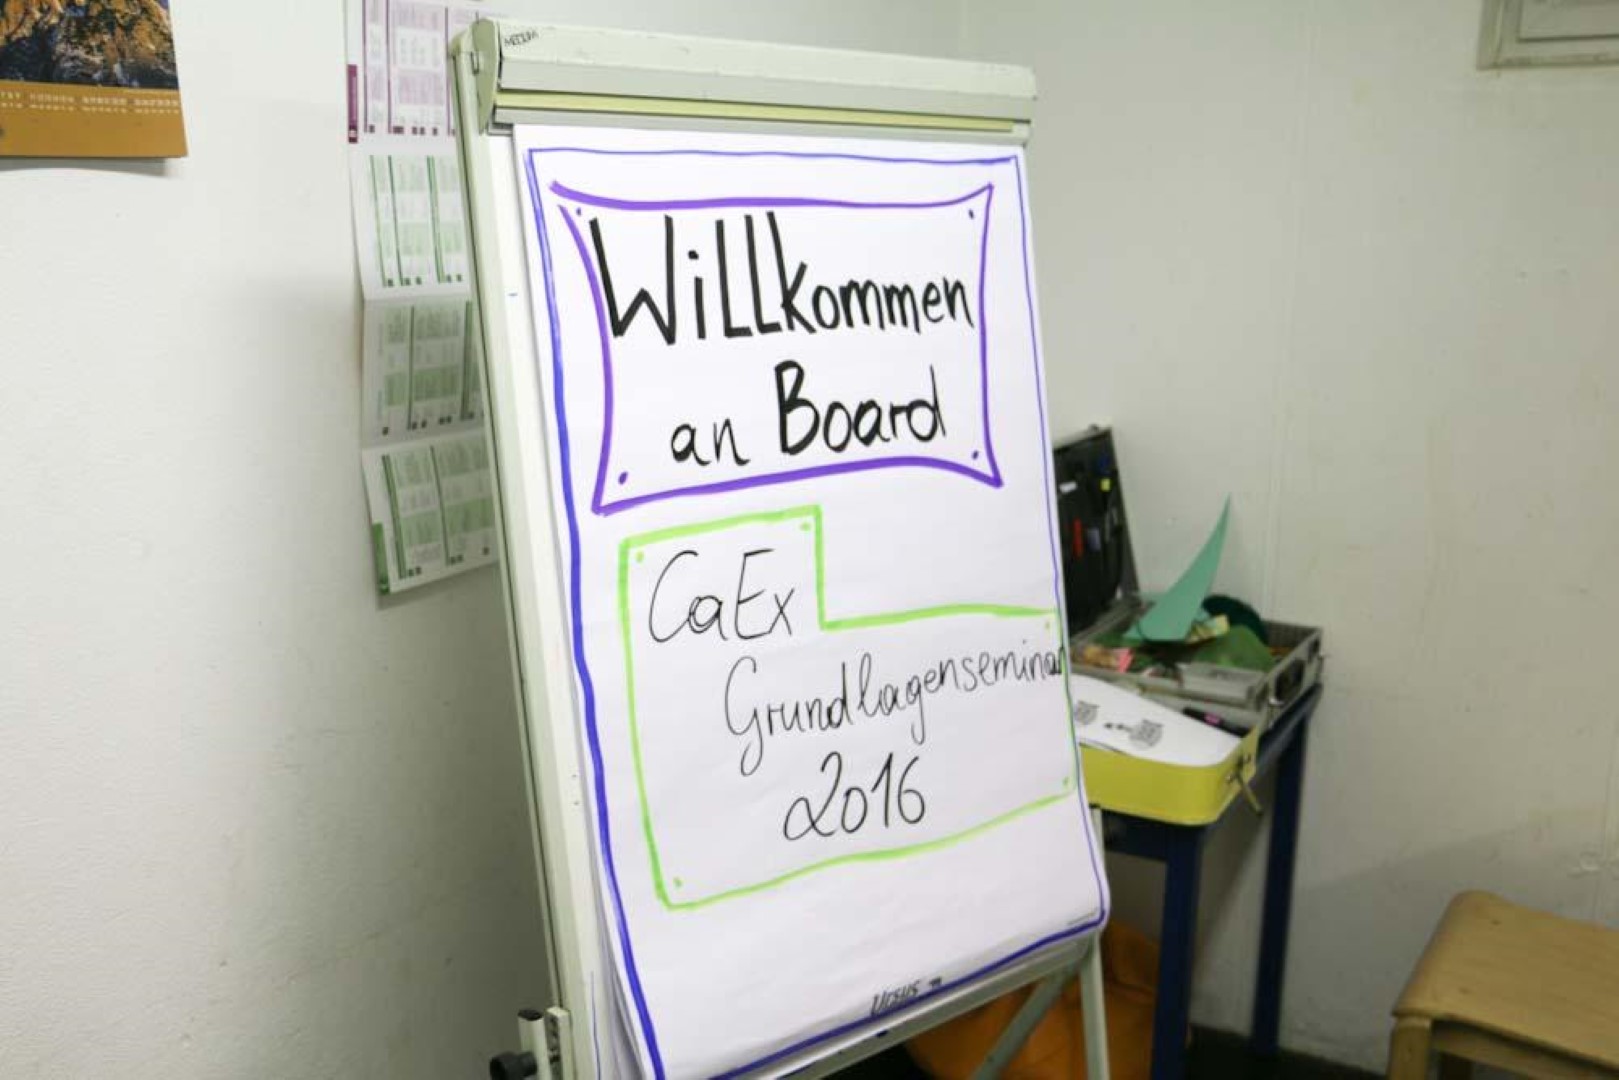 Willkommen
an Board
CaEx
Grundlagenseminar
2016